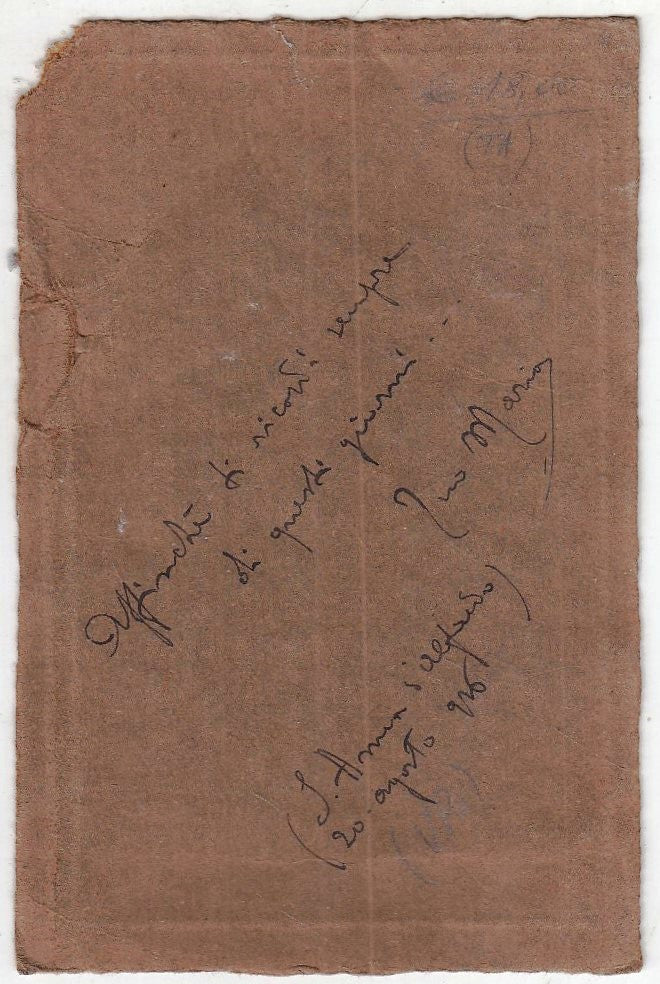 (77)
Affinchè ti ricordi sempre
di questi giorni ...
Tuo Mario
(S. Anna d'Alfaedo)
20 agosto 926